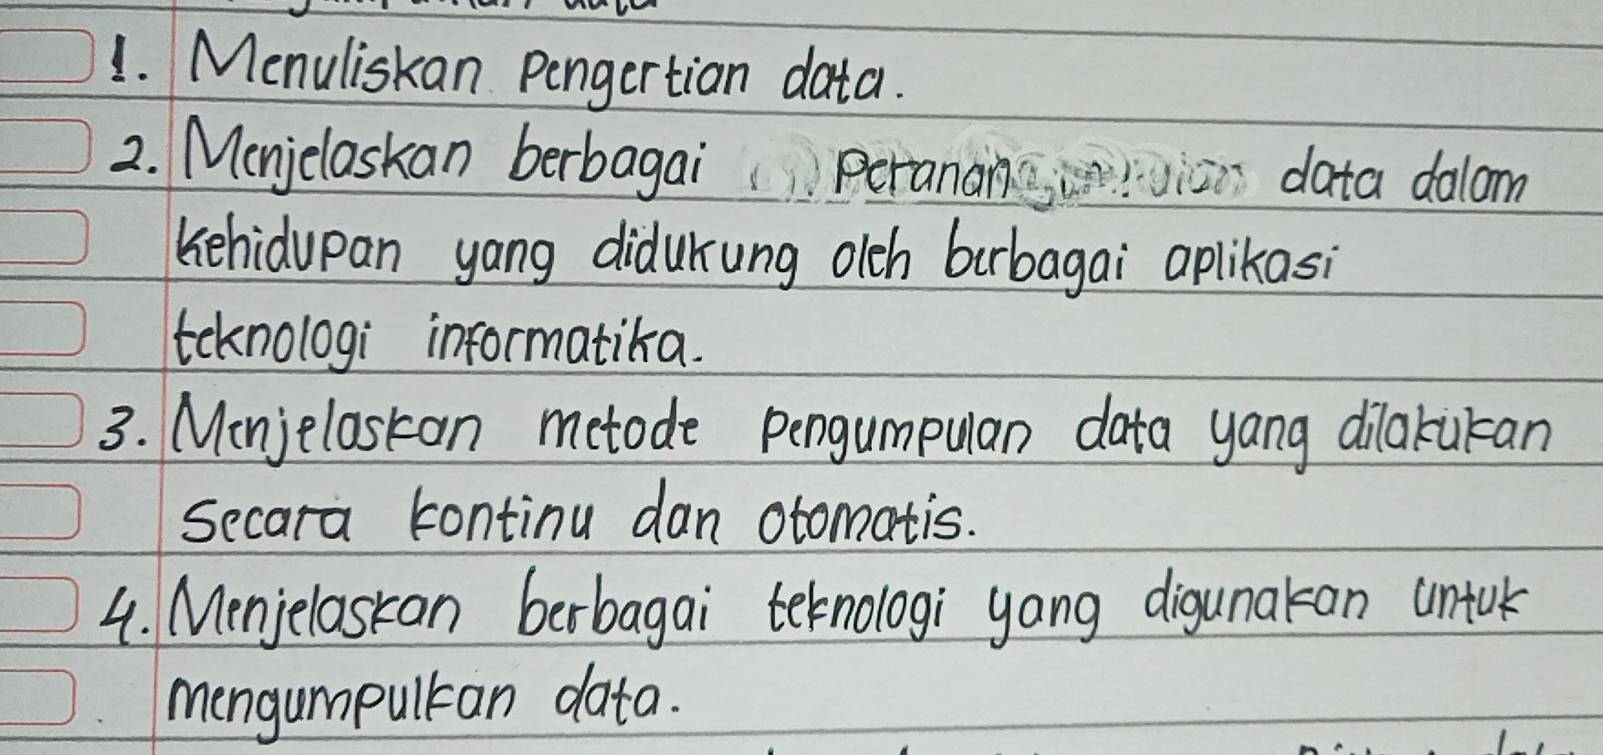 1. Menuliskan pengertian data.
2. Menjelaskan berbagai peranan data dalam
kehidupan yang didukung oleh berbagai aplikasi
teknologi informatika.
3. Menjelaskan metode pengumpulan data yang dilakukan
secara kontinu dan otomatis.
4. Menjelaskan berbagai teknologi yang digunakan untuk
mengumpulkan data.